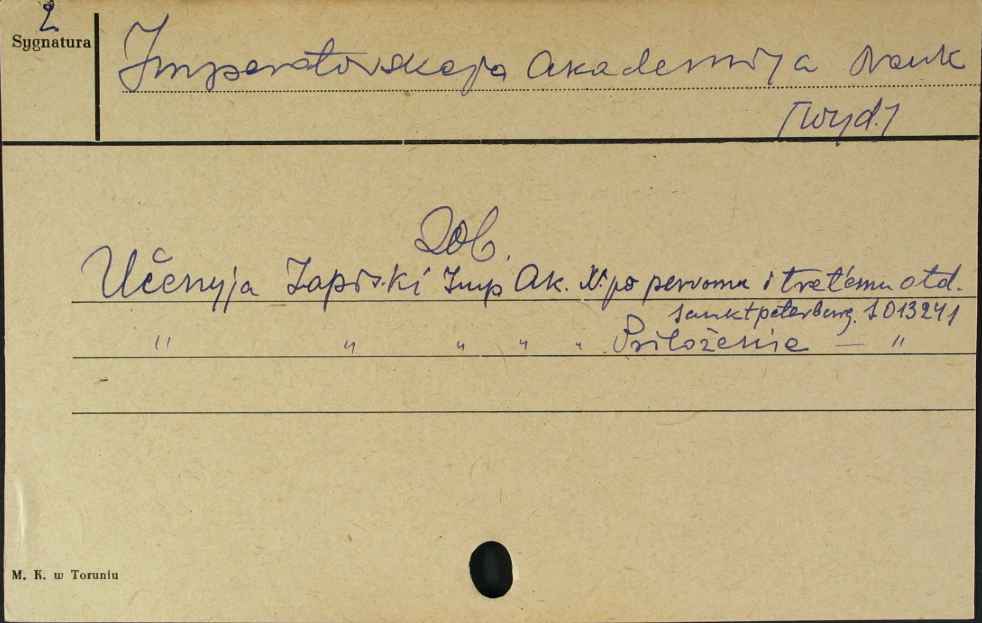 2
Sygnatura
Imperatorskaja Akademija Nauk
[wyd.]
Dob.
Učenyja Zapiski Imp Ak. N. po pervomu i tret'emu otd.
Sankt peterburg. S 013241
" " " " " Priloženie — "
M. K. w Toruniu